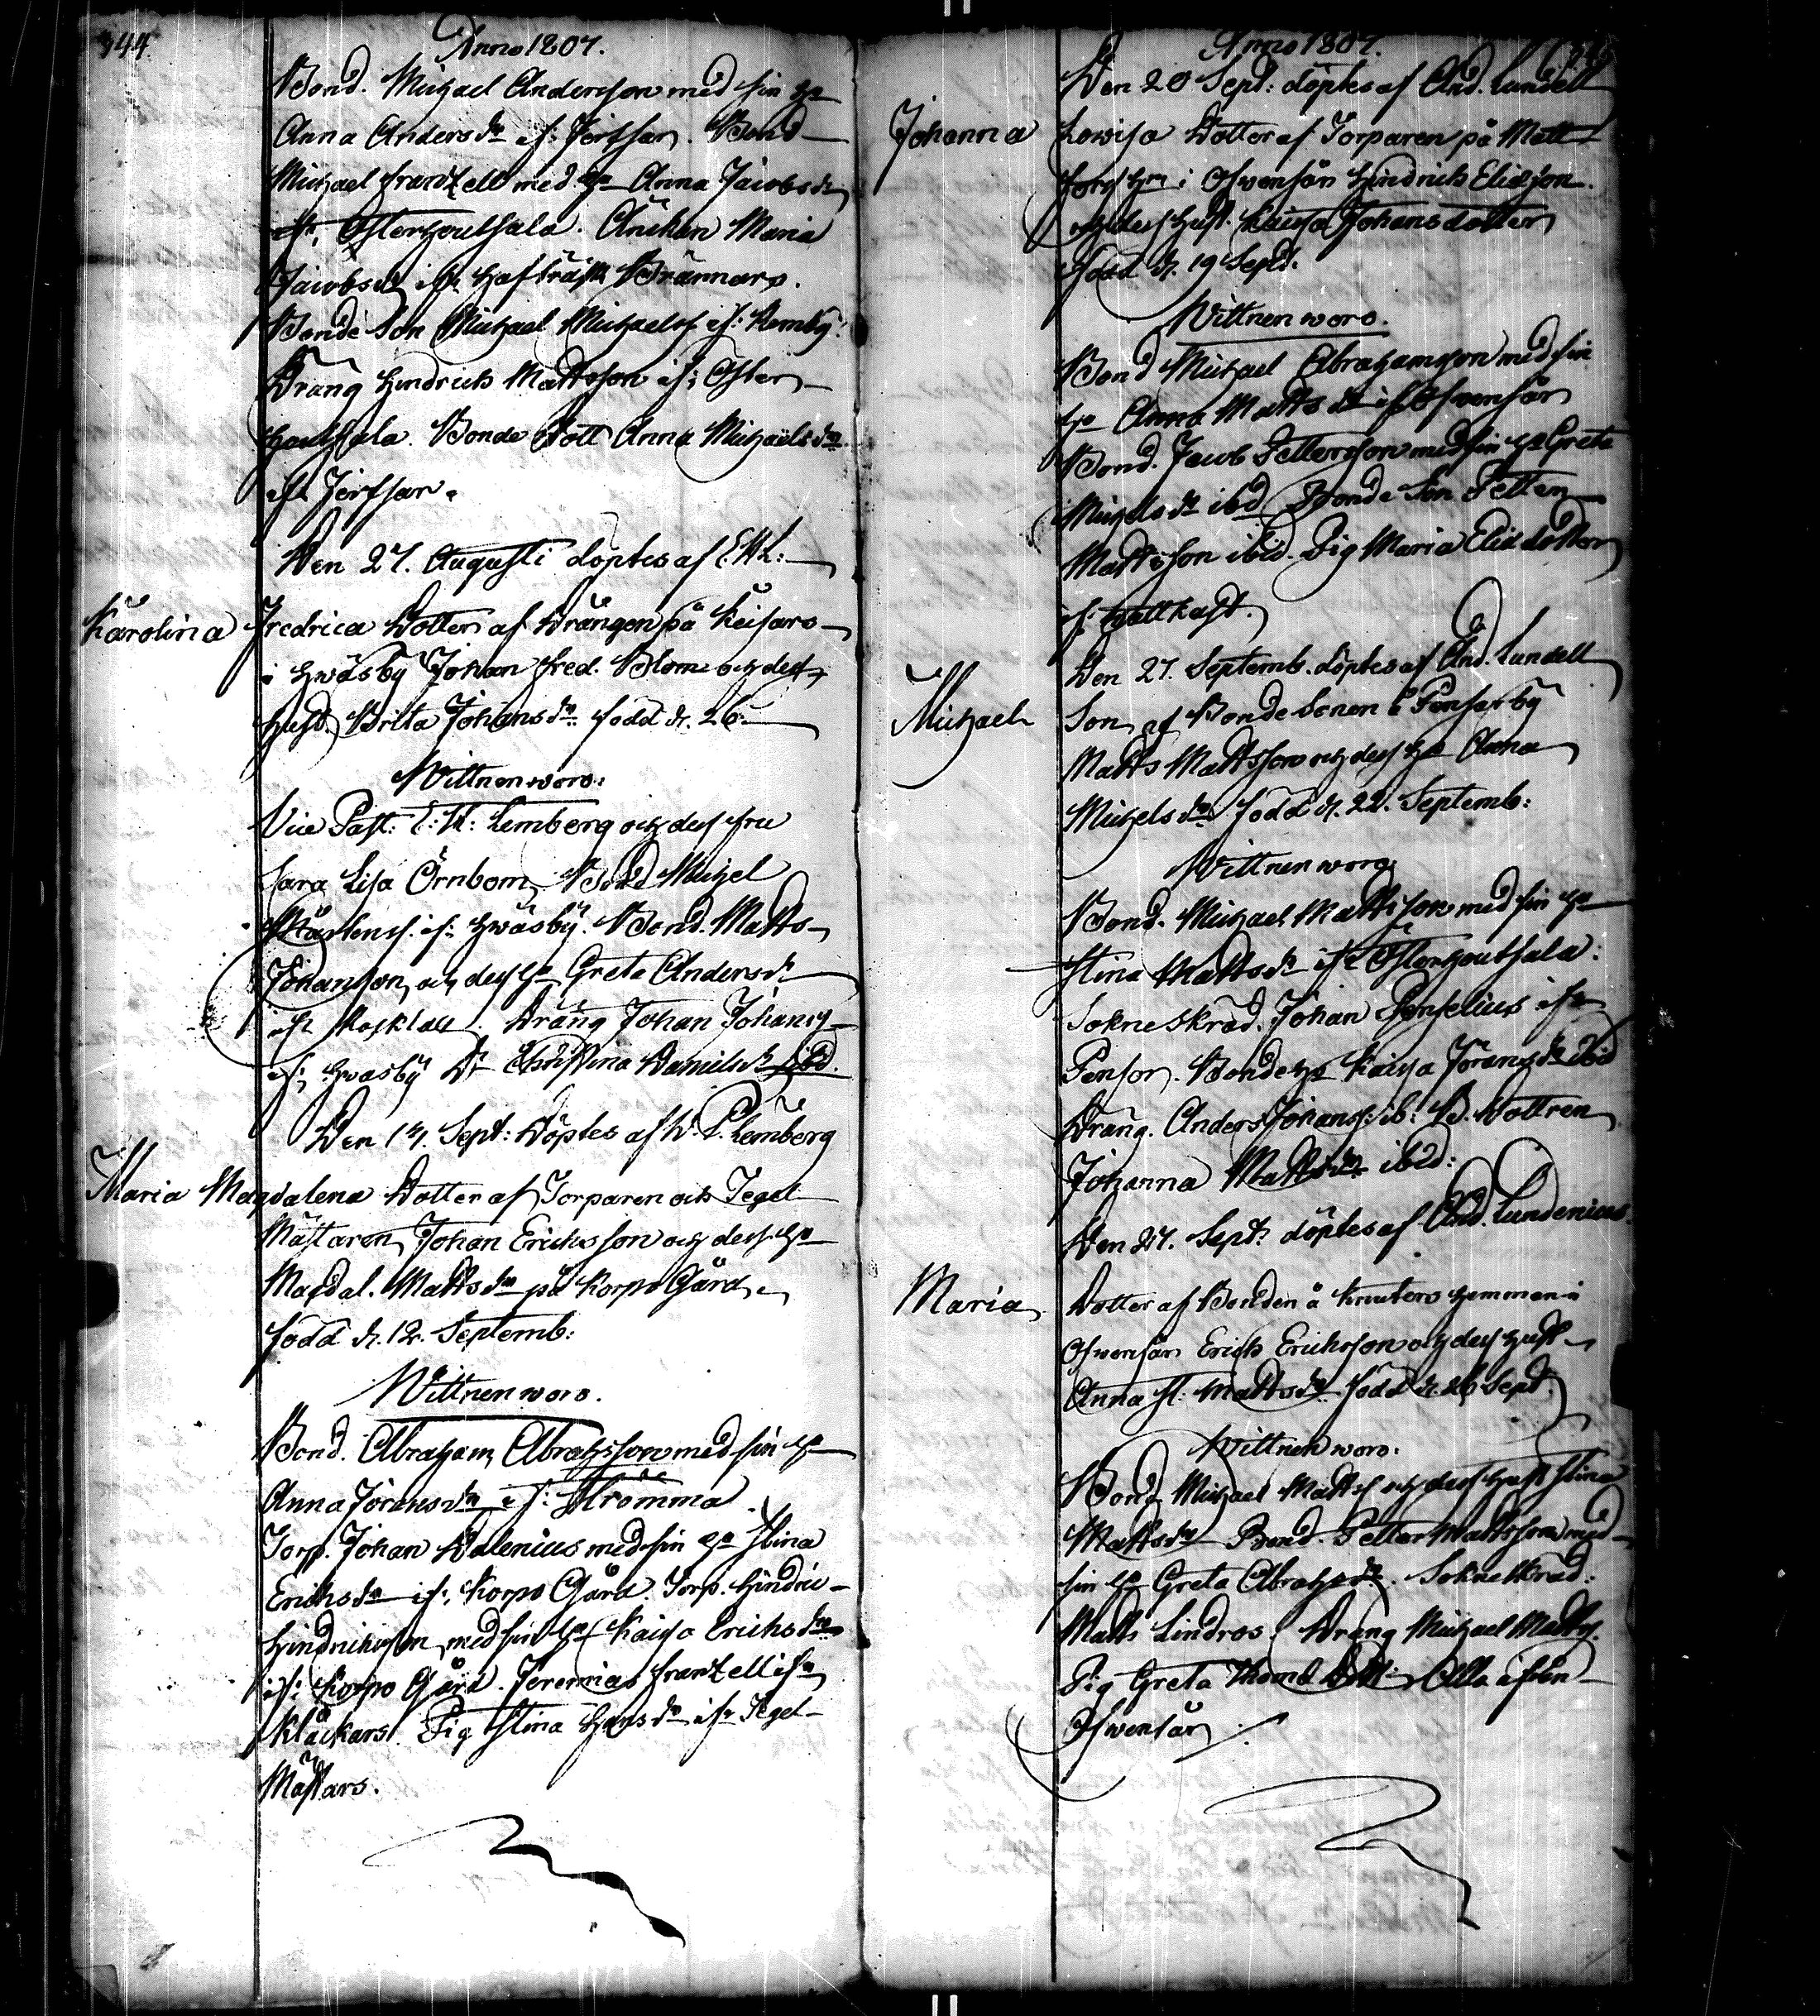 344
Anno 1807.
Bond. Michael Andersson med sin h:u
Anna Anders dr if: Jertsar. Bond
Michael Frantzell med h:u Anna Jacobs dr
ifr. Österhoutsala. Änckan Maria
Jacobs dr ifr Brännars.
Bonde Son Michael Michaelss if: Romby.
Dräng Hindrich Mattsson if: Öster
houtsala. Bonde Dott Anna Michaels dr
ifr Jertsar.
Den 27. Augusti döptes af E. M. L:
Karolina Fredrica Dotter af Drängen på Keisars
i Hwäsby Johan Fred. Blom och dess
Hust. Brita Johans dr. född d. 26.
Wittnen woro:
Vice Past: E: M: Lemberg och dess Fru
Sara Lisa Örnbom, Bond Michel
Mårtens. if: Hwäsby. Bond. Matts
Johansson, och dess h:u Greta Anders dr
ifr Rosklax. Dräng Johan Johanss
if: Hwasby Dr Christina Daniels dr ibd.
Den 14. Sept: Döptes af W. P. Lemberg
Maria Magdalena Dotter af Torparen och Tegel
Mästaren Johan Ericksson och dess h:u
Magdal. Matts dr på Korpo Gård
född d. 12. Septemb:
Wittnen woro.
Bond. Abraham Abrahsson med sin h:u
Anna Jörans dr if: Strömma.
Torp. Johan Walenius med sin h:u Stina
Erichs dr if: Korpo Gård. Torp. Hindric
Hindrichsson med sin h:u Kaisa Erichs dr
if: Korpo Gård. Jeremias Frantzell ifr
Kläckars. Pig Stina Hans dr ifr Tegel
Mästars.
Anno 1807.
Den 20 Sept: döptes af And. Lundell
Johanna Lowisa Dotter af Torparen på Matt
i Ofwensår Hindrich Eliasson
och dess Hust. Kaisa Johansdotter
född d. 19 Sept.
Wittnen woro.
Bond Michael Abrahamsson med sin
h:u Anna Matts dr if Ofwensår
Bond. Jacob Pettersson med sin h:u Greta
Michels dr ibd Bonde Son Petter
Mattsson ibid. Pig Maria Elias dotter
if: Wattkast.
Den 27. Septemb. döptes af And. Lundell
Michael Son af Bonde Sonen å Pensarby
Matts Mattsson och dess h:u Anna
Michels dr född d. 22. Septemb:
Wittnen woro
Bond. Michael Mattsson med sin h:u
Stina Matts dr ifr Österhoutsala:
Sokneskräd. Johan ifr
Pensor. Bonde h:u Kaisa Jörans dr ibid
Dräng. Anders Johanss: ib: B. Dottren
Johanna Matts dr ibid:
Den 27. Sept: döptes af And. Lundenius
Maria Dotter af Bonden å Knuters hemman i
Ofwensår Erich Erichsson och dess Hust
Anna St: Matts dr född d. 26 Sept.
Wittnen woro.
Bond Michael Matts och dess Hust Stina
Matts dr Bond. Petter Mattsson med
sin h:u Greta Abrahs dr. Sokneskräd:
Matts Lindros. Dräng Michael Matts.
Pig Greta Thoms Dott: Alla ifrån
Ofwensår